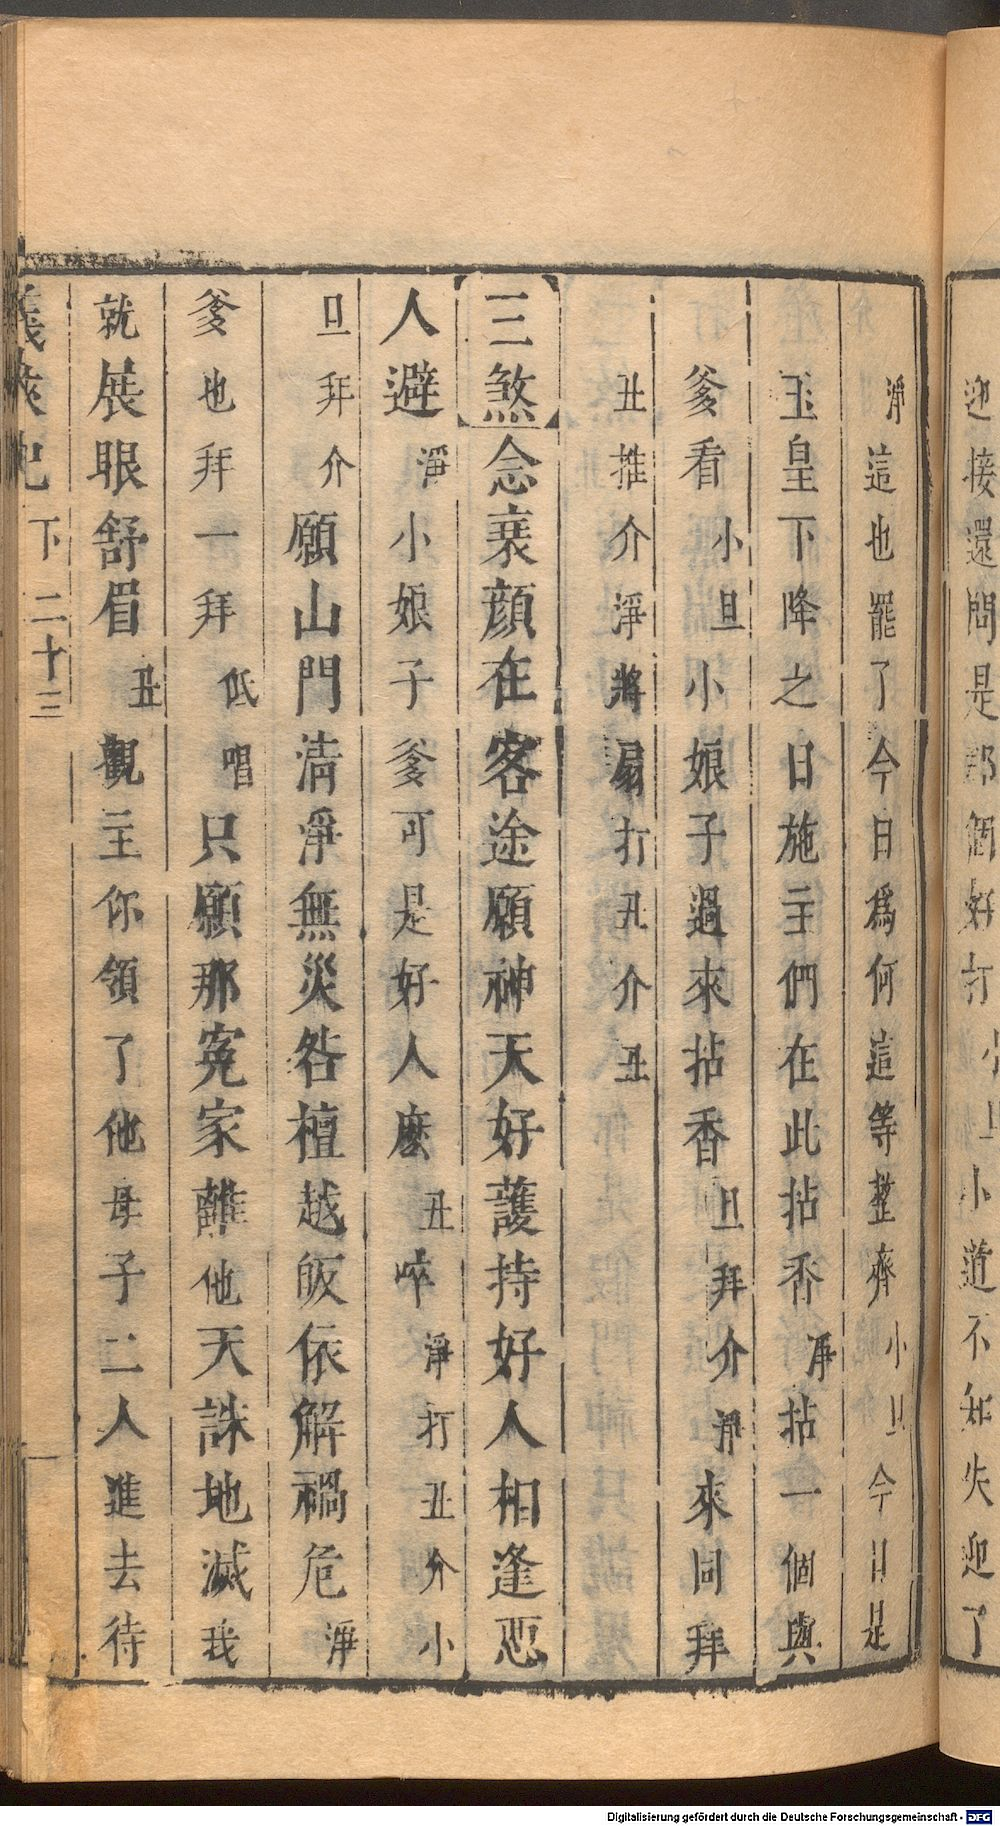 迎接還問是那個好打小旦小道不知失迎了
淨這也罷了今日爲何這等整齊小旦今日是
玉皇下降之日施主們在此拈香淨拈一個與
爹看小旦小娘子過來拈香旦拜介淨來同拜
丑推介淨將扇打丑介丑
三煞念衰顔在客途願神天好護持好人相逢惡
人避淨小娘子爹可是好人麽丑啐淨打丑介小
旦拜介願山門清淨無災咎檀越皈依解禍危淨
爹也拜一拜低唱只願那寃家離他天誅地滅我
就展眼舒眉丑觀主你領了他母子二人進去待
義俠記 下 二十三
Digitalisierung gefördert durch die Deutsche Forschungsgemeinschaft - DFG